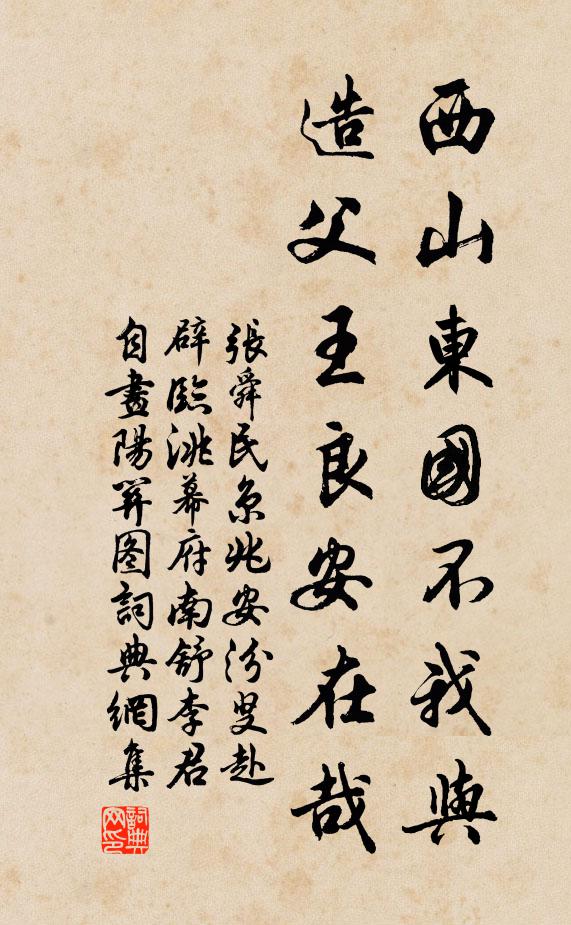 西山東國不我與
造父王良安在哉
張舜民京兆安汾叟赴
辟臨洮幕府南舒李君
自畫陽關图詞典網集
詞典網印